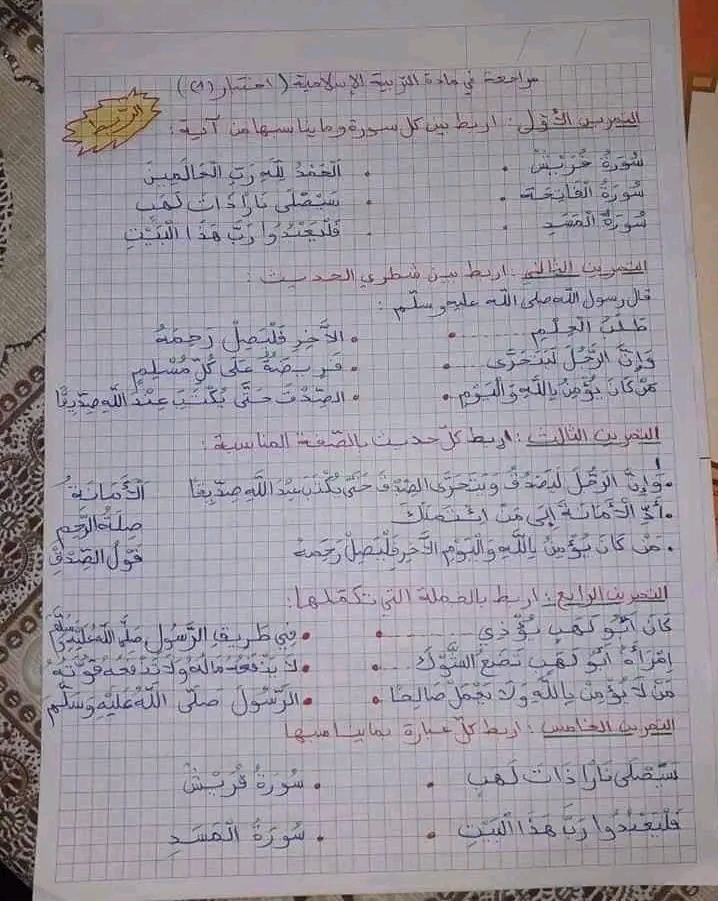 مراجعة في مادة التربية الإسلامية (اختبار (1))
الربط
التمرين الأول: اربط بين كل سورة وما يناسبها من آية:
سُورَةُ قُرَيْشٍ . . الْحَمْدُ لِلَّهِ رَبِّ الْعَالَمِينَ
سُورَةُ الْفَاتِحَة . . سَيَصْلَى نَارًا ذَاتَ لَهَبٍ
سُورَةُ الْمَسَدِ . . فَلْيَعْبُدُوا رَبَّ هَذَا الْبَيْتِ
التمرين الثاني: اربط بين شطري الحديث:
قال رسول الله صلى الله عليه وسلّم:
طَلَبُ الْعِلْمِ ........ . الآخِرِ فَلْيَصِلْ رَحِمَهُ
وَإِنَّ الرَّجُلَ لَيَتَحَرَّى ........ . فَرِيضَةٌ عَلَى كُلِّ مُسْلِمٍ
مَنْ كَانَ يُؤْمِنُ بِاللَّهِ وَالْيَوْمِ . . الصِّدْقَ حَتَّى يُكْتَبَ عِنْدَ اللَّهِ صِدِّيقًا
التمرين الثالث: اربط كلّ حديث بالصّفة المناسبة:
. وَإِنَّ الرَّجُلَ لَيَصْدُقُ وَيَتَحَرَّى الصِّدْقَ حَتَّى يُكْتَبَ عِنْدَ اللَّهِ صِدِّيقًا الْأَمَانَةُ
. أَدِّ الْأَمَانَةَ إِلَى مَنْ ائْتَمَنَكَ صِلَةُ الرَّحِمِ
. مَنْ كَانَ يُؤْمِنُ بِاللَّهِ وَالْيَوْمِ الْآخِرِ فَلْيَصِلْ رَحِمَهُ قَوْلُ الصِّدْقِ
التمرين الرابع: اربط بالجملة التي تكمّلها:
كَانَ أَبُو لَهَبٍ يُؤْذِي ........ . فِي طَرِيقِ الرَّسُولِ صَلَّى اللَّهُ عَلَيْهِ وَسَلَّمَ
امْرَأَةُ أَبُو لَهَبٍ تَضَعُ الشَّوْكَ ... . لَا يَنْفَعُهُ مَالُهُ وَلَا تَنْفَعُهُ قُوَّتُهُ
مَنْ لَا يُؤْمِنُ بِاللَّهِ وَلَا يَعْمَلُ صَالِحًا . . الرَّسُولَ صَلَّى اللَّهُ عَلَيْهِ وَسَلَّمَ
التمرين الخامس: اربط كلّ عبارة بما يناسبها
سَيَصْلَى نَارًا ذَاتَ لَهَبٍ . . سُورَةُ قُرَيْشٍ
فَلْيَعْبُدُوا رَبَّ هَذَا الْبَيْتِ . . سُورَةُ الْمَسَدِ